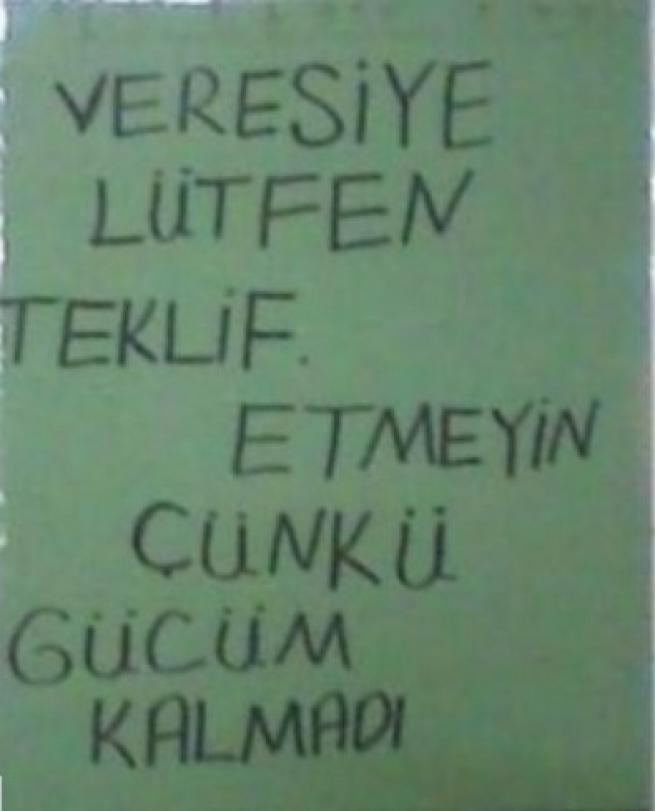 VERESİYE
LÜTFEN
TEKLİF.
ETMEYİN
ÇÜNKÜ
GÜCÜM
KALMADI